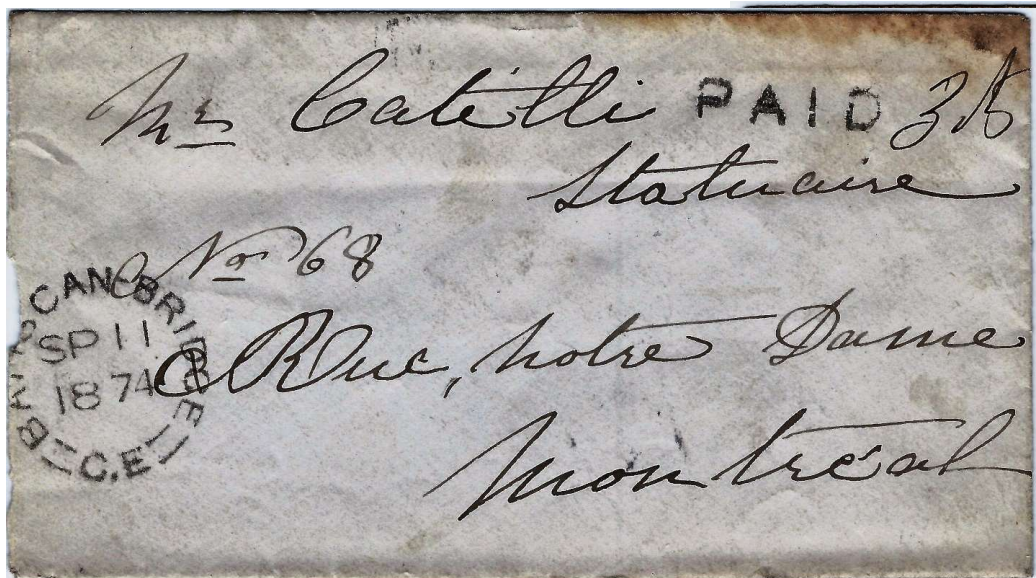 Mr Catélli PAID 3
Statuaire
No 68
Rue, Notre Dame
Montréal
BATISCAN-BRIDGE
SP 11
1874
C.E